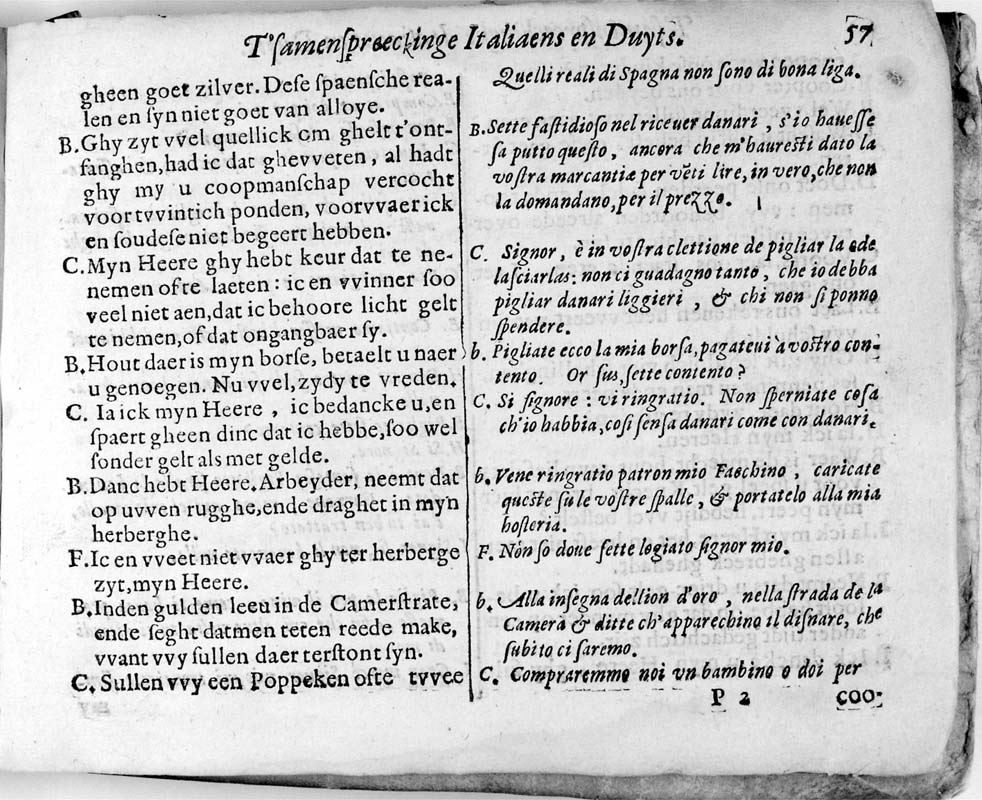 T'ſamenſpreeckinge Italiaens en Duyts.
57
gheen goet zilver. Deſe ſpaenſche rea-
len en ſyn niet goet van alloye.
B. Ghy zyt vvel quellick om ghelt t'ont-
fanghen, had ic dat ghevveten, al hadt
ghy my u coopmanſchap vercocht
voor tvvintich ponden, voorvvaer ick
en ſoudeſe niet begeert hebben.
C. Myn Heere ghy hebt keur dat te ne-
nemen ofte laeten: ic en vvinner ſoo
veel niet aen, dat ic behoore licht gelt
te nemen, of dat ongangbaer ſy.
B. Hout daer is myn borſe, betaelt u naer
u genoegen. Nu vvel, zydy te vreden.
C. Ia ick myn Heere, ic bedancke u, en
ſpaert gheen dinc dat ic hebbe, ſoo wel
ſonder gelt als met gelde.
B. Danc hebt Heere, Arbeyder, neemt dat
op uvven rugghe, ende draghet in myn
herberghe.
F. Ic en vveet niet vvaer ghy ter herberge
zyt, myn Heere.
B. Inden gulden leeu in de Camerſtrate,
ende ſeght datmen teten reede make,
vvant vvy ſullen daer terſtont ſyn.
C. Sullen vvy een Poppeken ofte tvvee
Quelli reali di Spagna non ſono di bona liga.
B. Sette faſtidioſo nel riceuer danari, s'io haueſſe
ſa putto queſto, ancora che m'haureſti dato la
voſtra marcantia per vēti lire, in vero, che non
la domandano, per il prezzo.
C. Signor, è in voſtra clettione de pigliar la ode
laſciarlas: non ci guadagno tanto, che io debba
pigliar danari liggieri, & chi non ſi ponno
ſpendere.
b. Pigliate ecco la mia borſa, pagateui à voſtro con-
tento. Or ſus, ſette contento?
C. Si ſignore: vi ringratio. Non ſperniate coſa
ch'io habbia, coſi ſenſa danari come con danari.
b. Vene ringratio patron mio Faechino, caricate
queſte ſu le voſtre ſpalle, & portatelo alla mia
hoſteria.
F. Nón ſo doue ſette logiato ſignor mio.
b. Alla inſegna dellion d'oro, nella ſtrada de la
Camera & ditte ch'apparechino il diſnare, che
ſubito ci ſaremo.
C. Compraremmo noi vn bambino o doi per
P 2
coo-